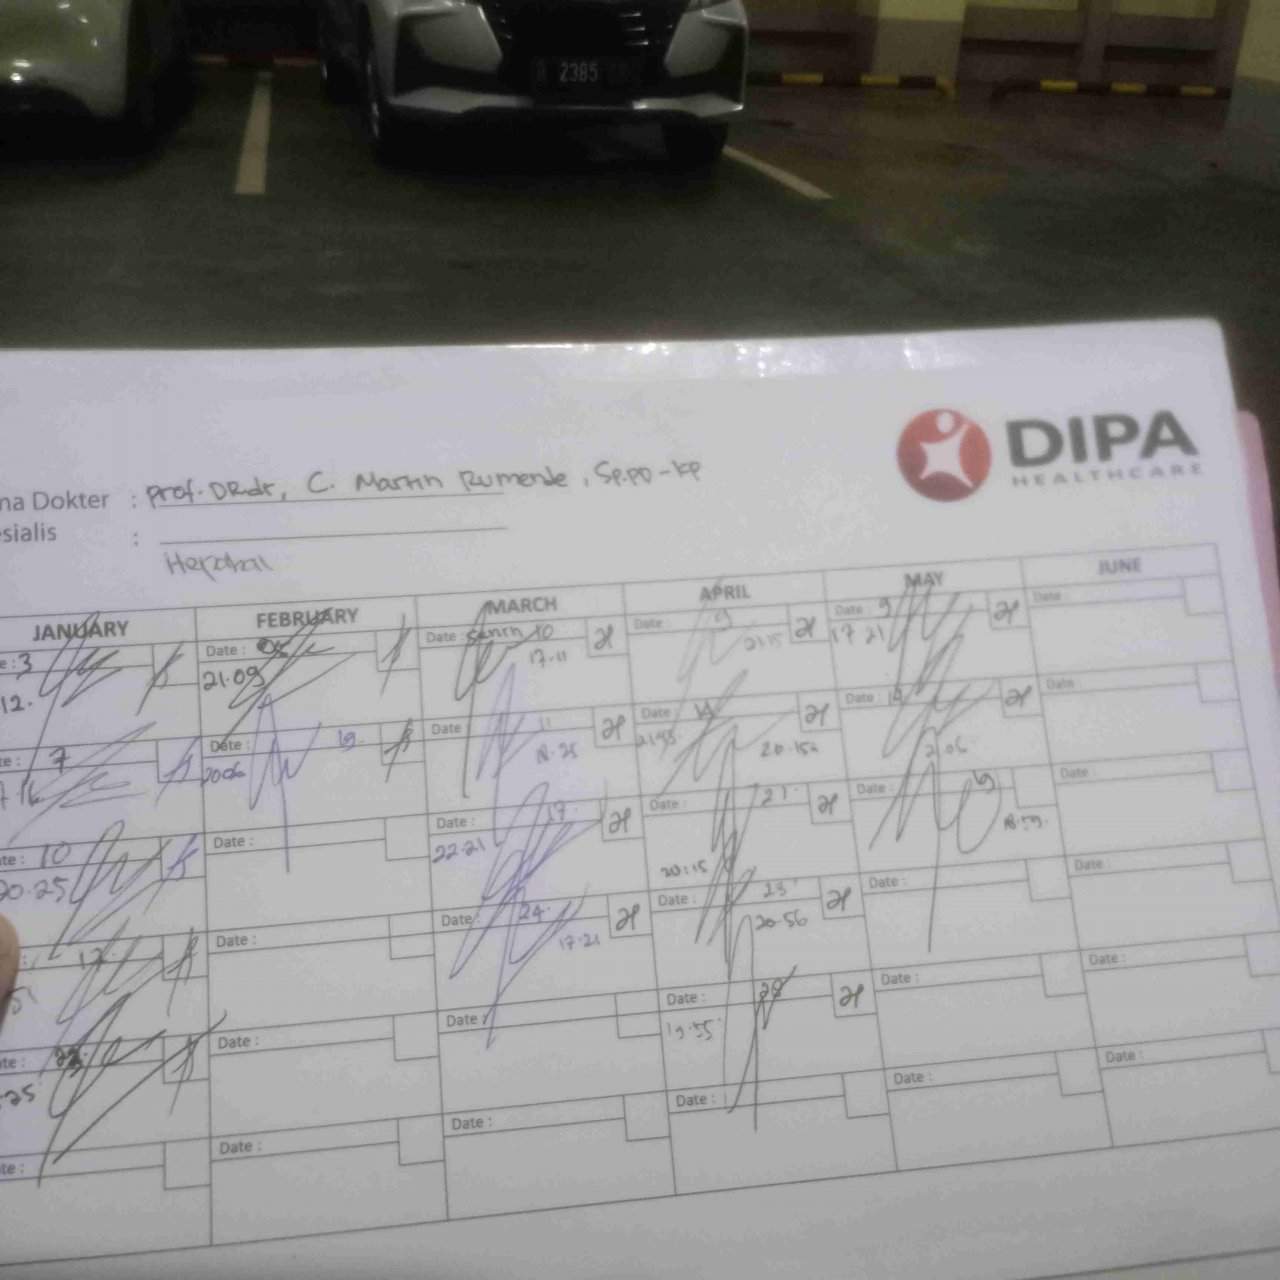 2385
DIPA
HEALTHCARE
na Dokter : Prof. DR.dr, C. Martin Rumende, Sp.PD-KP
esialis :
JANUARY FEBRUARY MARCH APRIL MAY JUNE
e : 3 Date : Date : Senin 10 Date : 9 Date : 9 Date :
12. 21.09 17.11 21.15 17 21
te : 7 Date : 19. Date 11 Date : 14 Date : 14 Date :
2006 18.25 20.15 21.06
te : 10 Date : Date : 17. Date : 21. Date : 19 Date :
20.25 22.21 20:15 18.59.
17. Date : Date : 24. Date : 23 Date : Date :
17.21 20.56
te : 22. Date : Date : Date : 28 Date : Date :
.25 19.55
te : Date : Date : Date : Date : Date :